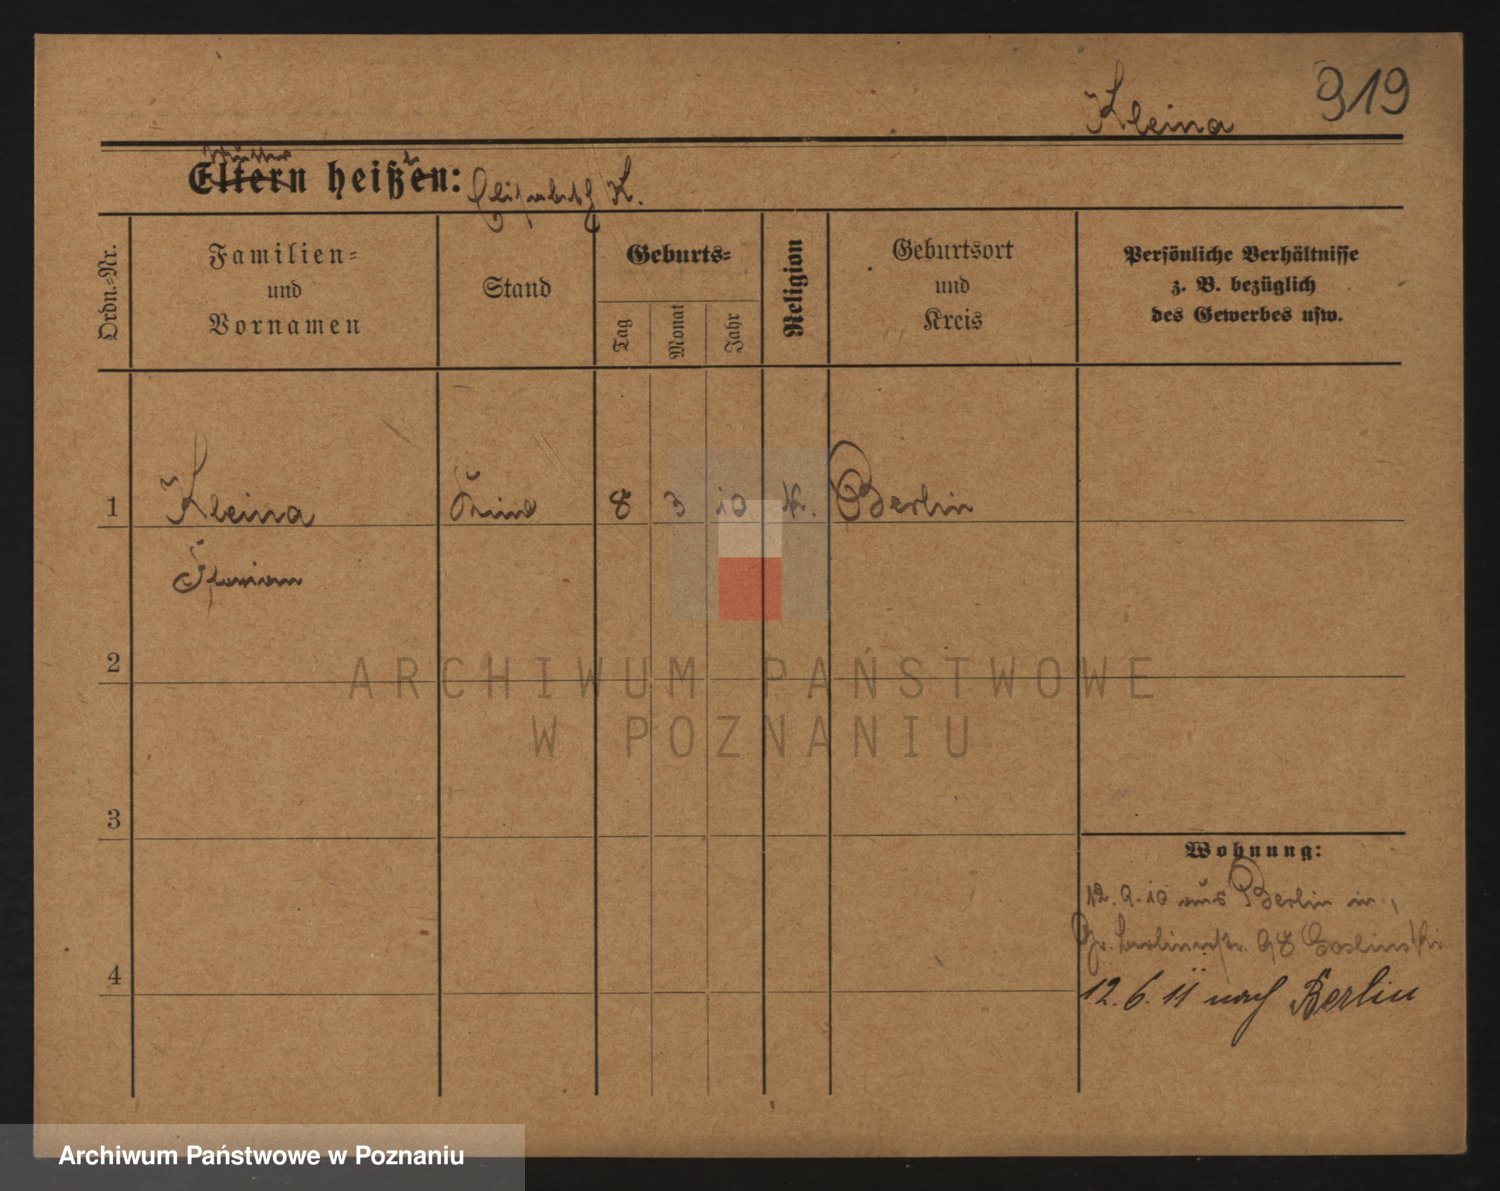 919
Kleina
Mutter
Eltern heißen:
Elisabeth K.
Ordn.-Nr.
Familien-
und
Vornamen
Stand
Geburts-
Tag
Monat
Jahr
Religion
Geburtsort
und
Kreis
Persönliche Verhältnisse
z. B. bezüglich
des Gewerbes usw.
1
Kleina
Kind
8
3
10
K.
Berlin
Florian
2
ARCHIWUM PAŃSTWOWE
W POZNANIU
3
Wohnung:
12. 9. 10 aus Berlin in
Gr. Berlinerstr. 98 Goslinski
4
12. 6. 11 nach Berlin
Archiwum Państwowe w Poznaniu